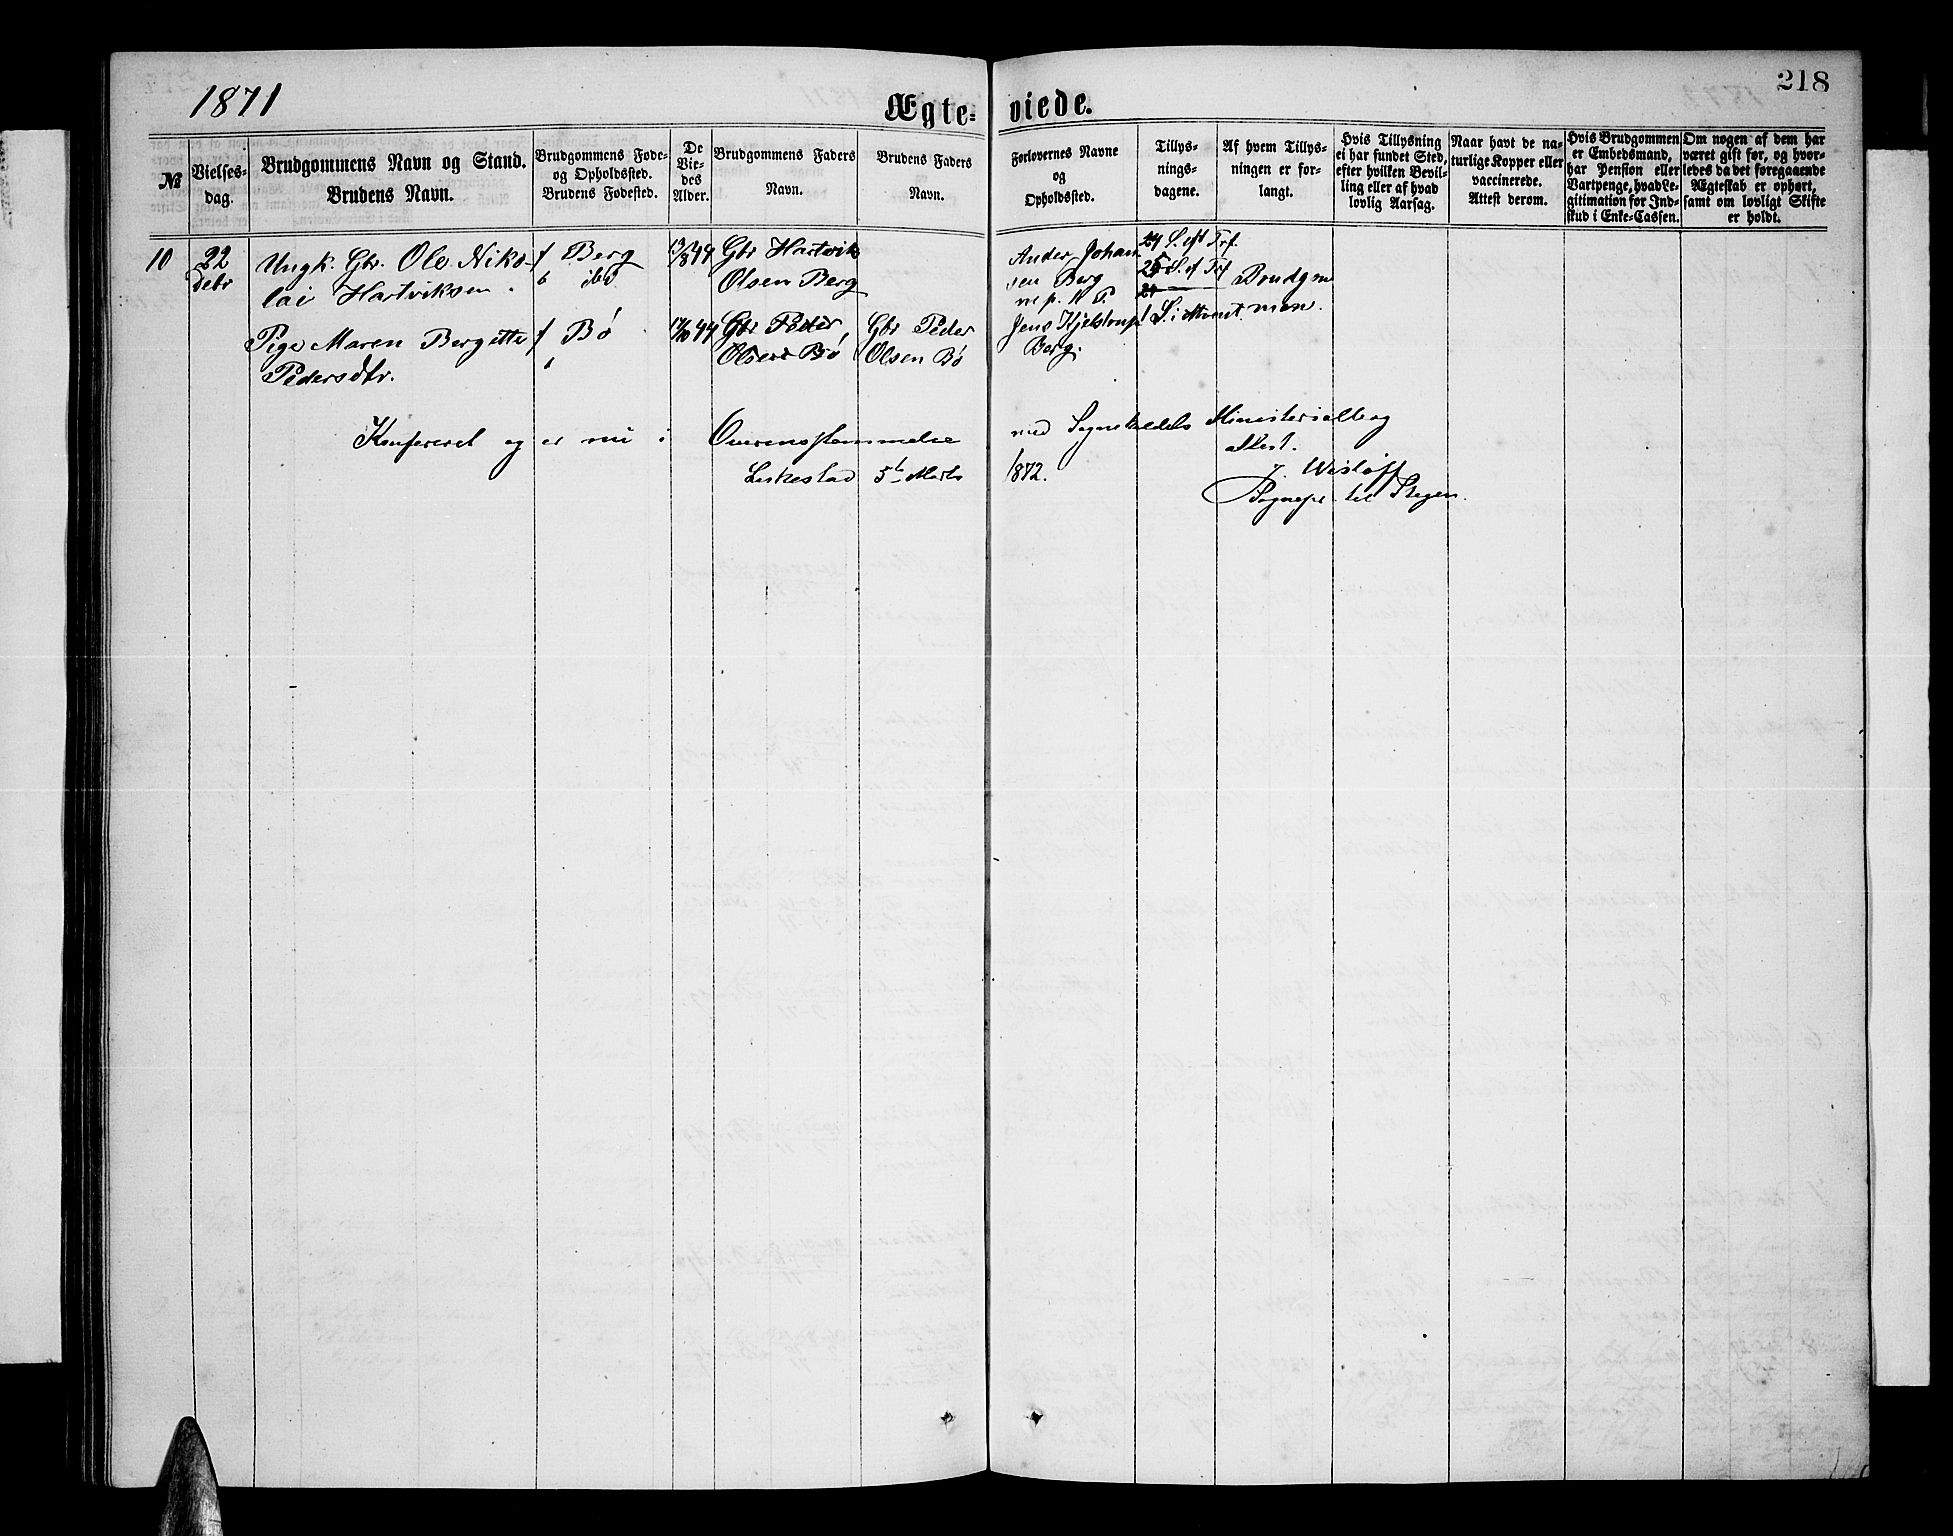 218
1871
Ægte-
viede.
№
Vielses-
dag.
Brudgommens Navn og Stand.
Brudens Navn.
Brudgommens Føde-
og Opholdssted.
Brudens Fødested.
De
Vie-
des
Alder.
Brudgommens Faders
Navn.
Brudens Faders
Navn.
Forlovernes Navne
og
Opholdssted.
Tillys-
nings-
dagene.
Af hvem Tillys-
ningen er for-
langt.
Hvis Tillysning
ei har fundet Sted,
efter hvilken Bevil-
ling eller af hvad
lovlig Aarsag.
Naar havt de na-
turlige Kopper eller
vaccinerede.
Attest derom.
Hvis Brudgommen
er Embedsmand,
har Pension eller
Vartpenge, hvad Le-
gitimation for Ind-
skud i Enke-Cassen.
Om nogen af dem har
været gift før, og hvor-
ledes da det foregaaende
Ægteskab er ophørt,
samt om lovligt Skifte
er holdt.
10
22
Debr
Ungk. Gbr. Ole Niko-
lai Hartviksen.
f Berg
b ibd
13/8 44
Gbr Hartvik
Olsen Berg
Ander Johan
sen Berg
24 S. eft Trf.
25 S. ef Trf
Brudgm
Pige Maren Bergitte
Pedersdtr.
f Bø
44
Gbr Peder
Olsen Bø
Gbr Peder
Olsen Bø
Jens Kjelstrup
Berg.
Konfereret og er nu i Overensstemmelse med Sognekaldets Ministerialbog
Attest.
Leikestad 5te Marts 1872.
J. Wisløff
Sognepr til Stegen.